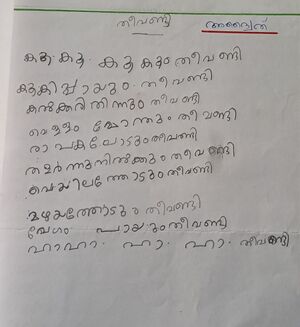 തീവണ്ടി അദ്വൈത്
കൂ കൂ കൂ കൂകും തീവണ്ടി
കൂകിപ്പായും തീവണ്ടി
കൽക്കരി തിന്നും തീവണ്ടി
വെള്ളം മോന്തും തീവണ്ടി
രാപകലോടും തീവണ്ടി
തളർന്നുനിൽക്കും തീവണ്ടി
വെയിലത്തോടും തീവണ്ടി
മഴയത്തോടും തീവണ്ടി
വേഗം പായും തീവണ്ടി
ഹാഹാ. ഹാ. ഹാ. തീവണ്ടി